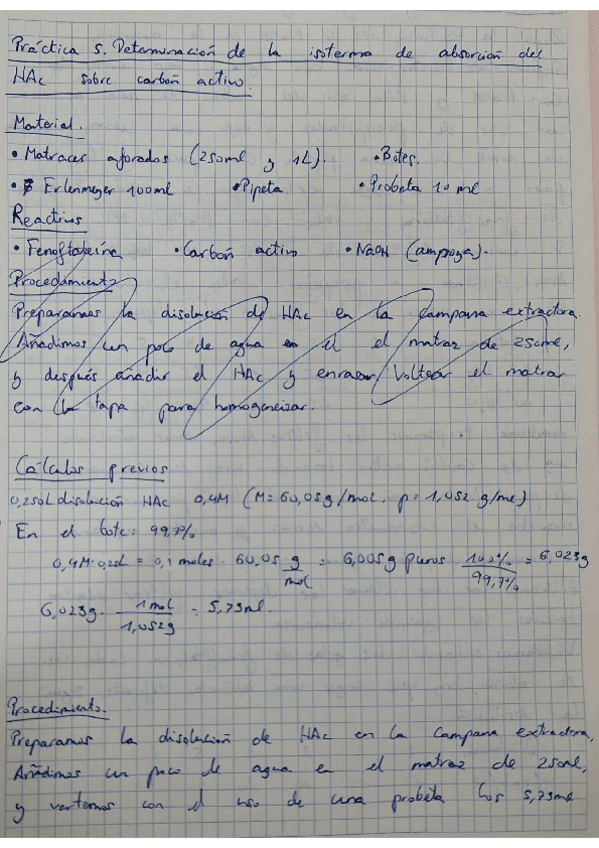 Práctica 5. Determinación de la isoterma de absorción del
HAc sobre carbón activo.
Material.
• Matraces aforados (250ml y 1L). • Botes.
• Erlenmeyer 100ml • Pipeta • Probeta 10 ml
Reactivos
• Fenoftaleína • Carbón activo • NaOH (ampoya).
Procedimiento
Preparamos la disolución de HAc en la campana extractora.
Añadimos un poco de agua en el el matraz de 250ml,
y después añadir el HAc y enrasar. Voltear el matraz
con la tapa para homogeneizar.
Cálculos previos
0,250L disolución HAc 0,4M (M=60,05g/mol. ρ=1,052 g/ml)
En el bote: 99,7%
0,4M·0,25L = 0,1 moles · 60,05 g/mol = 6,005g puros 100%/99,7% = 6,023g
6,023g · 1ml/1,052g = 5,73ml.
Procedimiento.
Preparamos la disolución de HAc en la campana extractora.
Añadimos un poco de agua en el matraz de 250ml,
y vertemos con el uso de una probeta los 5,73ml